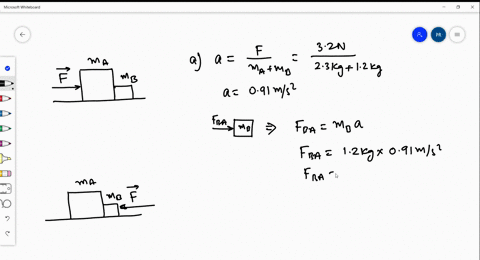 Microsoft Whiteboard
PR
mA
mB
F
a) a = F / (mA + mB) = 3.2N / (2.3kg + 1.2kg)
a = 0.91 m/s²
FBA
mB
⇒ FBA = mB a
FBA = 1.2kg × 0.91 m/s²
FBA =
mA
mB
F